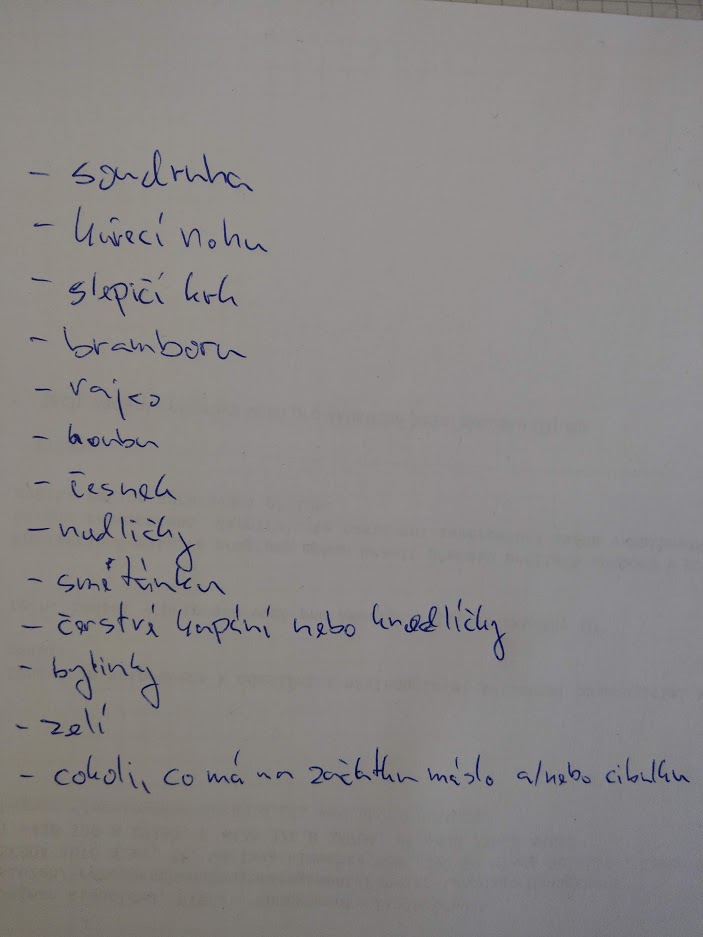 - soudruha
- kuřecí nohu
- slepičí krk
- bramboru
- vajco
- houbu
- česnek
- nudličky
- smetánku
- čerstvé kapání nebo knedlíčky
- bylinky
- zelí
- cokoli, co má na začátku máslo a/nebo cibulku